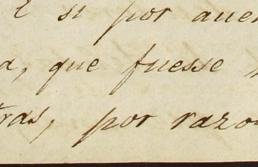 E si por aue
a, que fuesse
tras, por razo